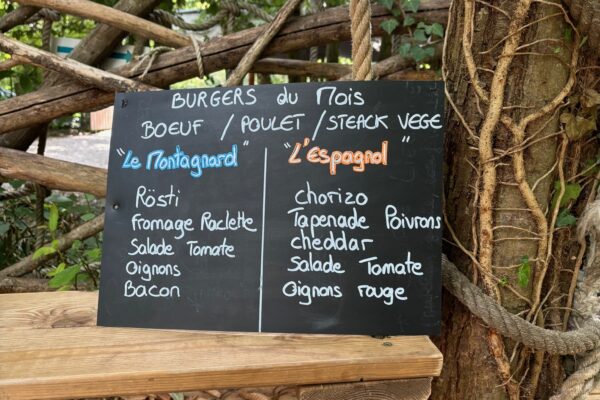 BURGERS du Mois
BOEUF / POULET / STEACK VEGE
"Le Montagnard"
Rösti
Fromage Raclette
Salade Tomate
Oignons
Bacon
"L'Espagnol"
chorizo
Tapenade Poivrons
cheddar
Salade Tomate
Oignons rouge